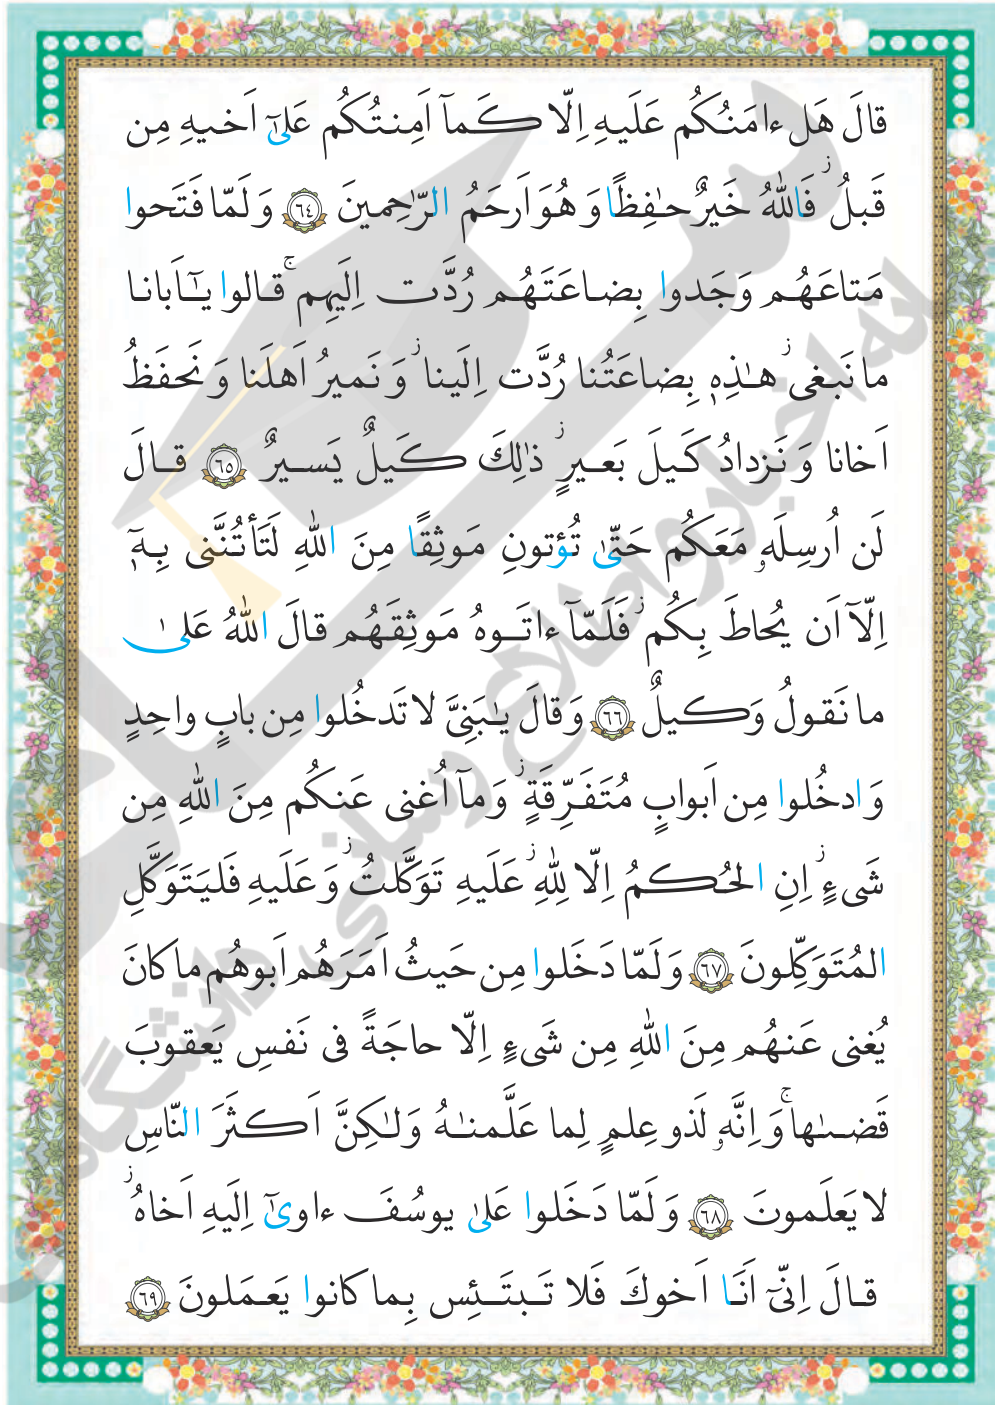 قالَ هَل ءامَنُكُم عَلَيهِ اِلّا كَمآ اَمِنتُكُم عَلىٰٓ اَخيهِ مِن
قَبلُ ۖ فَاللّٰهُ خَيرٌ حٰفِظًا وَ هُوَ اَرحَمُ الرّٰحِمينَ ﴿٦٤﴾ وَ لَمّا فَتَحوا
مَتاعَهُم وَجَدوا بِضاعَتَهُم رُدَّت اِلَيهِم ۚ قالوا يٰٓاَبانا
ما نَبغى ۖ هٰذِهٖ بِضاعَتُنا رُدَّت اِلَينا ۖ وَ نَميرُ اَهلَنا وَ نَحفَظُ
اَخانا وَ نَزدادُ كَيلَ بَعيرٍ ۖ ذٰلِكَ كَيلٌ يَسيرٌ ﴿٦٥﴾ قالَ
لَن اُرسِلَهٗ مَعَكُم حَتّىٰ تُؤتونِ مَوثِقًا مِنَ اللّٰهِ لَتَأتُنَّنى بِهٖٓ
اِلّآ اَن يُحاطَ بِكُم ۖ فَلَمّآ ءاتَوهُ مَوثِقَهُم قالَ اللّٰهُ عَلىٰ
ما نَقولُ وَكيلٌ ﴿٦٦﴾ وَ قالَ يٰبَنِىَّ لا تَدخُلوا مِن بابٍ واحِدٍ
وَ ادخُلوا مِن اَبوابٍ مُتَفَرِّقَةٍ ۖ وَ مآ اُغنى عَنكُم مِنَ اللّٰهِ مِن
شَىءٍ ۖ اِنِ الحُكمُ اِلّا لِلّٰهِ ۖ عَلَيهِ تَوَكَّلتُ ۖ وَ عَلَيهِ فَليَتَوَكَّلِ
المُتَوَكِّلونَ ﴿٦٧﴾ وَ لَمّا دَخَلوا مِن حَيثُ اَمَرَهُم اَبوهُم ما كانَ
يُغنى عَنهُم مِنَ اللّٰهِ مِن شَىءٍ اِلّا حاجَةً فى نَفسِ يَعقوبَ
قَضىٰها ۚ وَ اِنَّهٗ لَذو عِلمٍ لِما عَلَّمنٰهُ وَ لٰكِنَّ اَكثَرَ النّاسِ
لا يَعلَمونَ ﴿٦٨﴾ وَ لَمّا دَخَلوا عَلىٰ يوسُفَ ءاوىٰٓ اِلَيهِ اَخاهُ ۖ
قالَ اِنّىٓ اَنَا اَخوكَ فَلا تَبتَئِس بِما كانوا يَعمَلونَ ﴿٦٩﴾